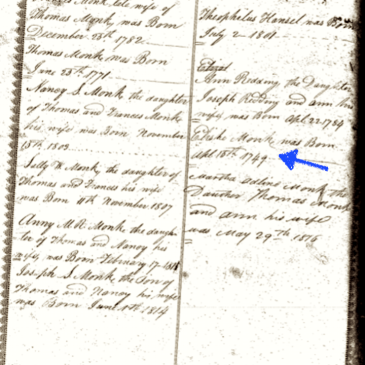 Monk late wife of
Thomas Monk was Born
December 25th 1782
Thomas Monk was Born
June 28th 1771
Nancy S Monk the daughter
of Thomas and Frances Monk
his wife was Born November
15th 1803
Sally W Monk the daughter of
Thomas and Frances his wife
was Born 11th November 1807
Anny M R Monk the daugh-
ter of Thomas and Nancy his
wife was Born February 17
Joseph S Monk the Son of
Thomas and Nancy his wife
was Born June 10th 1814
Theophilus Hansel was Born
July 2 1801
Ann Redding the Daughter
Joseph Redding and ann his
wife was Born Apl 22 1784
Monk was Born
Apl 18th 1749
Martha Monk the
Daughter Thomas Monk
and ann his wife
was May 29th 1816